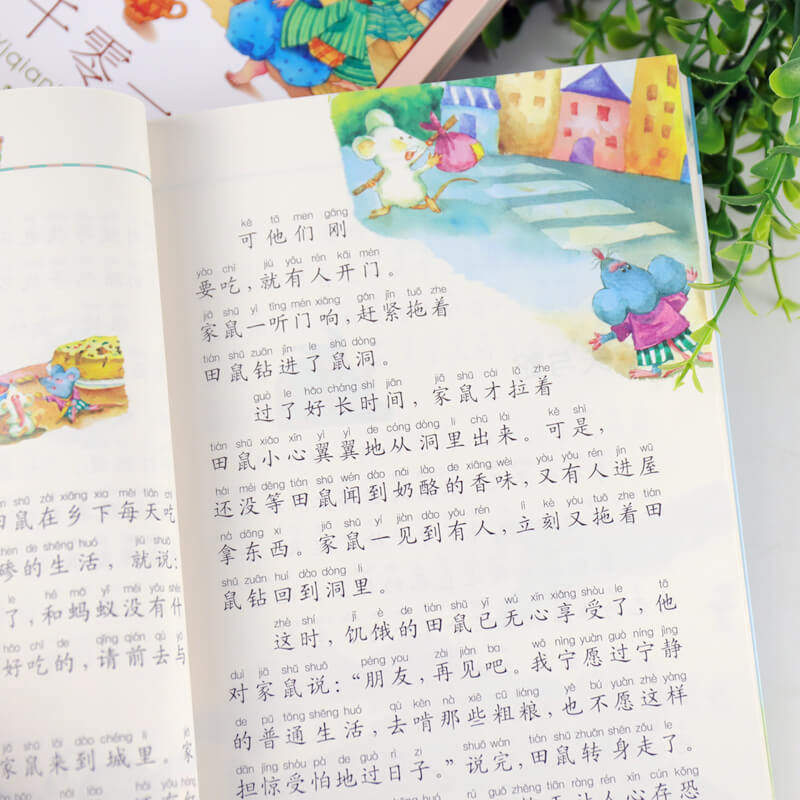 千零
shǔ zài xiāng xia měi tiān chī
田鼠在乡下每天吃
de shēng huó jiù shuō
碜的生活，就说：
le hé mǎ yǐ méi yǒu shén
了，和蚂蚁没有什
hǎo chī de qǐng qián qù yǔ
好吃的，请前去与
jiā shǔ lái dào chéng lǐ
家鼠来到城里。家
kě tā men gāng
可他们刚
yào chī jiù yǒu rén kāi mén
要吃，就有人开门。
jiā shǔ yì tīng mén xiǎng gǎn jǐn tuō zhe
家鼠一听门响，赶紧拖着
tián shǔ zuān jìn le shǔ dòng
田鼠钻进了鼠洞。
guò le hǎo cháng shí jiān jiā shǔ cái lā zhe
过了好长时间，家鼠才拉着
tián shǔ xiǎo xīn yì yì de cóng dòng li chū lái kě shì
田鼠小心翼翼地从洞里出来。可是，
hái méi děng tián shǔ wén dào nǎi lào de xiāng wèi yòu yǒu rén jìn wū
还没等田鼠闻到奶酪的香味，又有人进屋
ná dōng xi jiā shǔ yí jiàn dào yǒu rén lì kè yòu tuō zhe tián
拿东西。家鼠一见到有人，立刻又拖着田
shǔ zuān huí dào dòng li
鼠钻回到洞里。
zhè shí jī è de tián shǔ yǐ wú xīn xiǎng shòu le tā
这时，饥饿的田鼠已无心享受了，他
duì jiā shǔ shuō péng you zài jiàn ba wǒ nìng yuàn guò níng jìng
对家鼠说：“朋友，再见吧。我宁愿过宁静
de pǔ tōng shēng huó qù kěn nà xiē cū liáng yě bú yuàn zhè yàng
的普通生活，去啃那些粗粮，也不愿这样
dān jīng shòu pà de guò rì zi shuō wán tián shǔ zhuǎn shēn zǒu le
担惊受怕地过日子。”说完，田鼠转身走了。